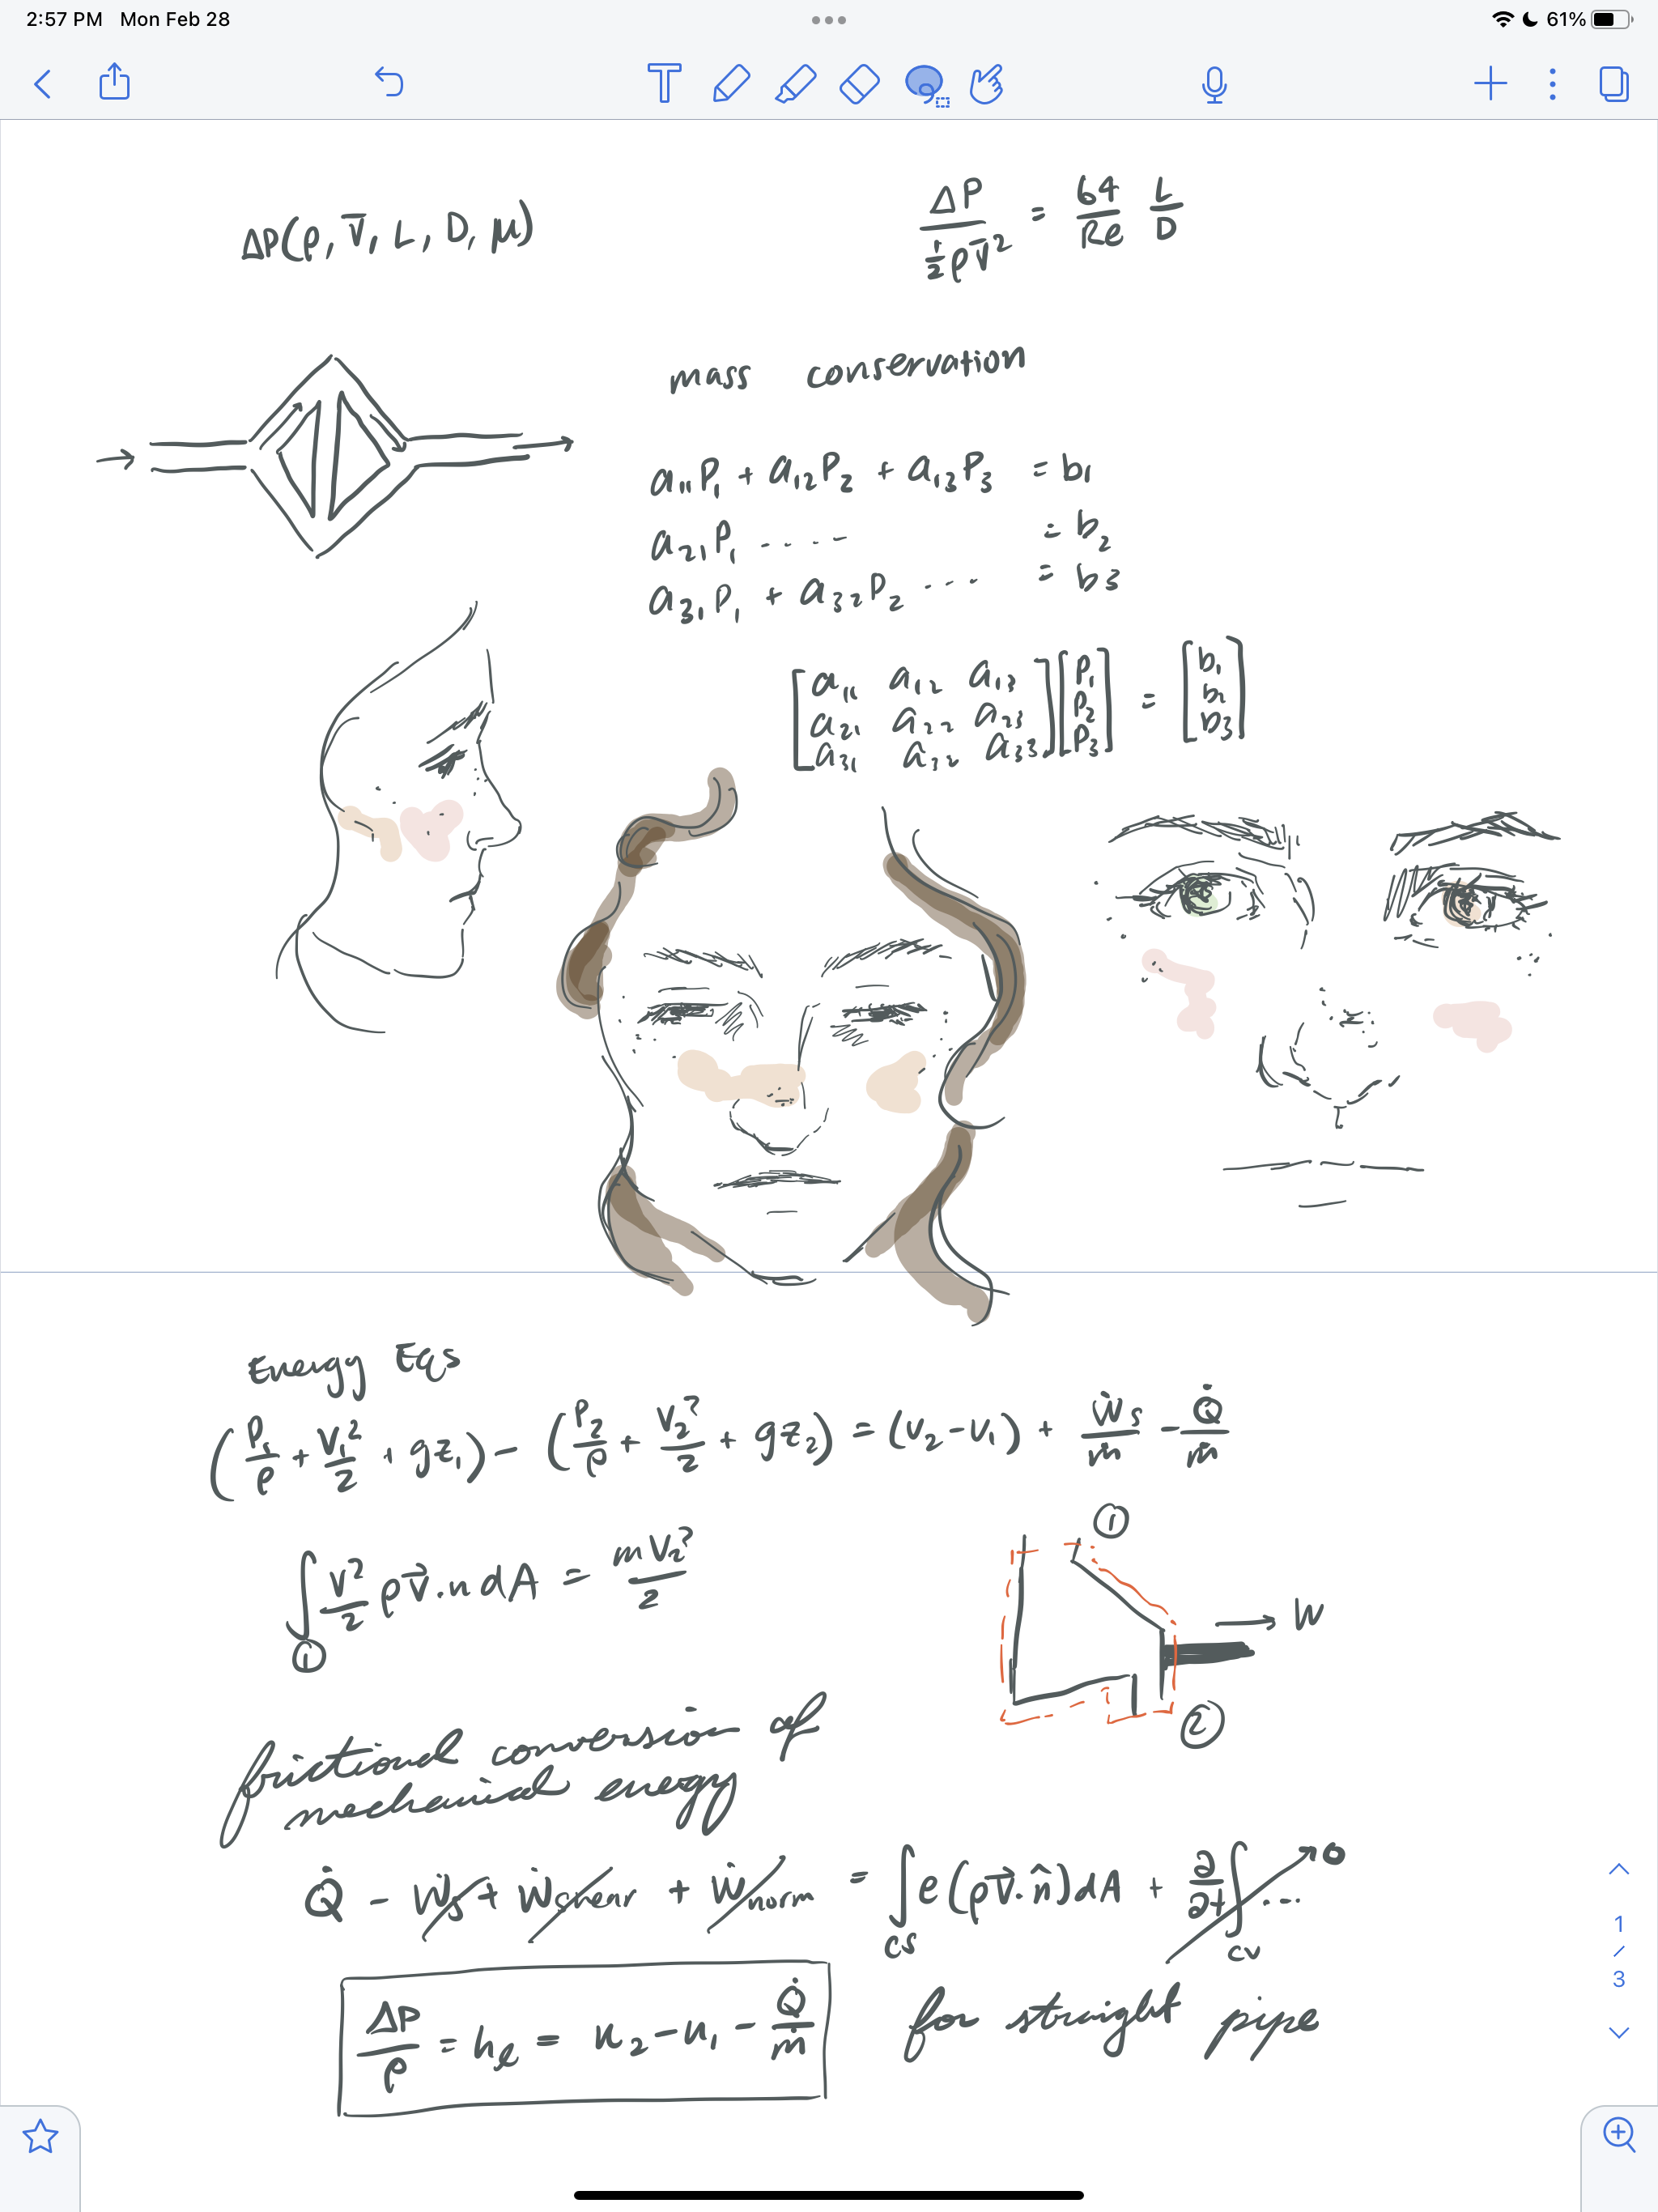 2:57 PM Mon Feb 28
61%
ΔP(ρ, V̄, L, D, μ)
ΔP / ½ρV̄² = 64/Re L/D
mass conservation
a₁₁P₁ + a₁₂P₂ + a₁₃P₃ = b₁
a₂₁P₁ ..... = b₂
a₃₁P₁ + a₃₂P₂ ... = b3
[a₁₁ a₁₂ a₁₃] [P₁] = [b₁]
[a₂₁ a₂₂ a₂₃] [P₂] [b₂]
[a₃₁ a₃₂ a₃₃] [P₃] [b₃]
Energy Eqs
(P₁/ρ + V₁²/2 + gz₁) - (P₂/ρ + V₂²/2 + gz₂) = (u₂ - u₁) + Ẇs/ṁ - Q̇/ṁ
∫① V²/2 ρV⃗.n dA = mV₂²/2
①
W
②
frictional conversion of
mechanical energy
Q̇ - Ẇs + Ẇshear + Ẇnorm = ∫cs e(ρV⃗.n̂)dA + ∂/∂t ∫cv ... 0
ΔP/ρ = hℓ = u₂ - u₁ - Q̇/ṁ
for straight pipe
1
/
3